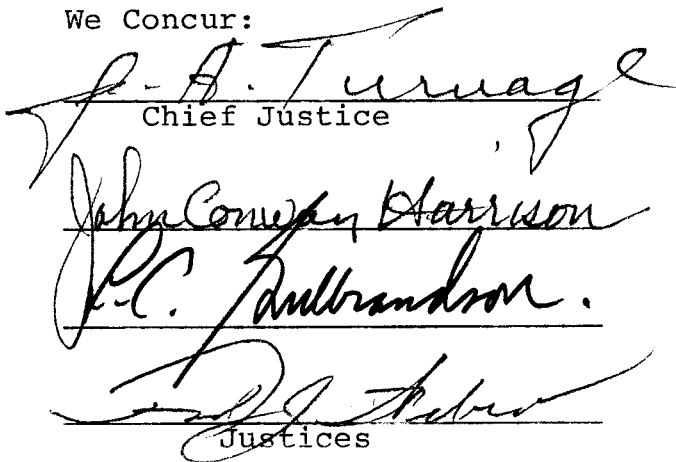 We Concur:
J. A. Turnage
Chief Justice
John Conway Harrison
L.C. Gulbrandson.
Justices